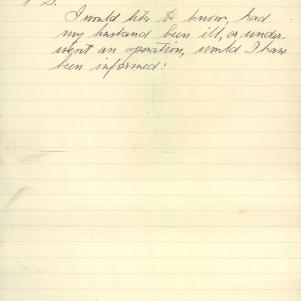 P.S.
I would like to know, had
my husband been ill, or under-
went an operation, would I have
been informed?